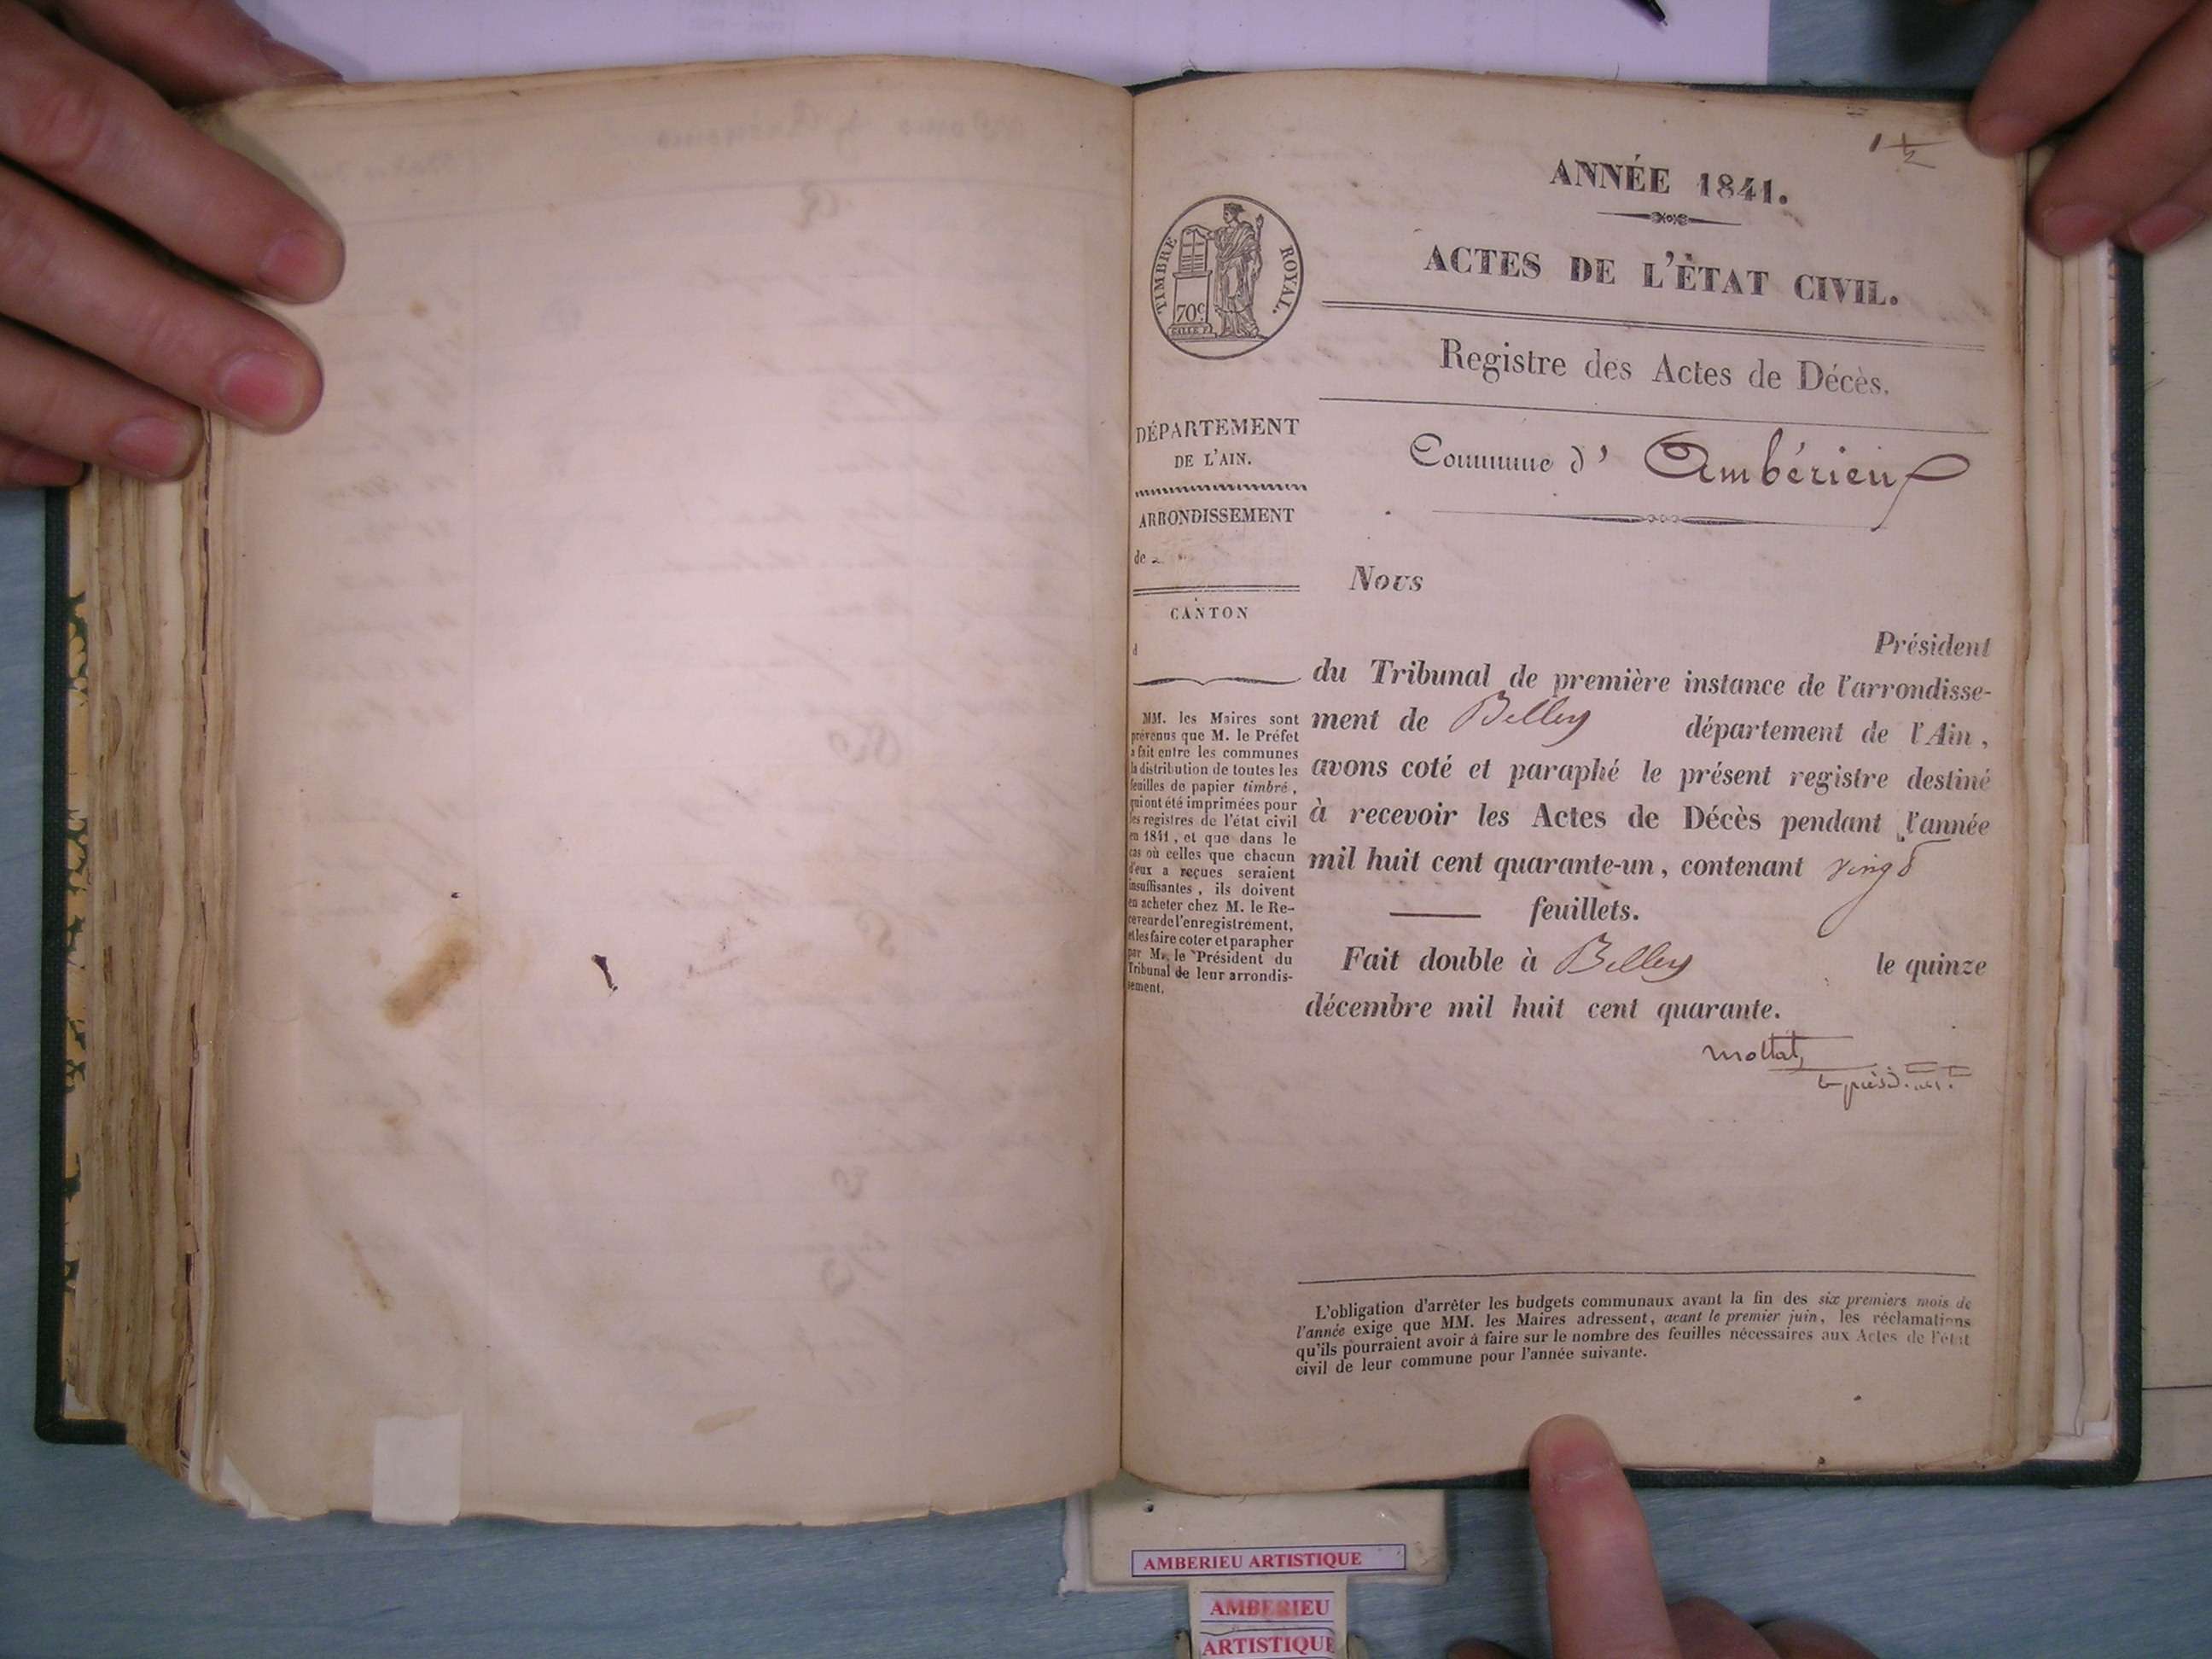 ANNÉE 1841.
ACTES DE L'ÈTAT CIVIL.
TIMBRE ROYAL.
70c
Registre des Actes de Décès.
Commune d' Ambérieux
DÉPARTEMENT
DE L'AIN.
ARRONDISSEMENT
de
CANTON
d
MM. les Maires sont
prévenus que M. le Préfet
a fait entre les communes
la distribution de toutes les
feuilles de papier timbré,
qui ont été imprimées pour
les registres de l'état civil
en 1841, et que dans le
cas où celles que chacun
d'eux a reçues seraient
insuffisantes, ils doivent
en acheter chez M. le Re-
ceveur de l'enregistrement,
et les faire coter et parapher
par M. le Président du
Tribunal de leur arrondis-
sement.
Nous
Président
du Tribunal de première instance de l'arrondisse-
ment de Belley département de l'Ain,
avons coté et paraphé le présent registre destiné
à recevoir les Actes de Décès pendant l'année
mil huit cent quarante-un, contenant vingt
feuillets.
Fait double à Belley le quinze
décembre mil huit cent quarante.
mottat,
le président.
L'obligation d'arrêter les budgets communaux avant la fin des six premiers mois de
l'année exige que MM. les Maires adressent, avant le premier juin, les réclamations
qu'ils pourraient avoir à faire sur le nombre des feuilles nécessaires aux Actes de l'état
civil de leur commune pour l'année suivante.
AMBERIEU ARTISTIQUE
AMBERIEU
ARTISTIQUE